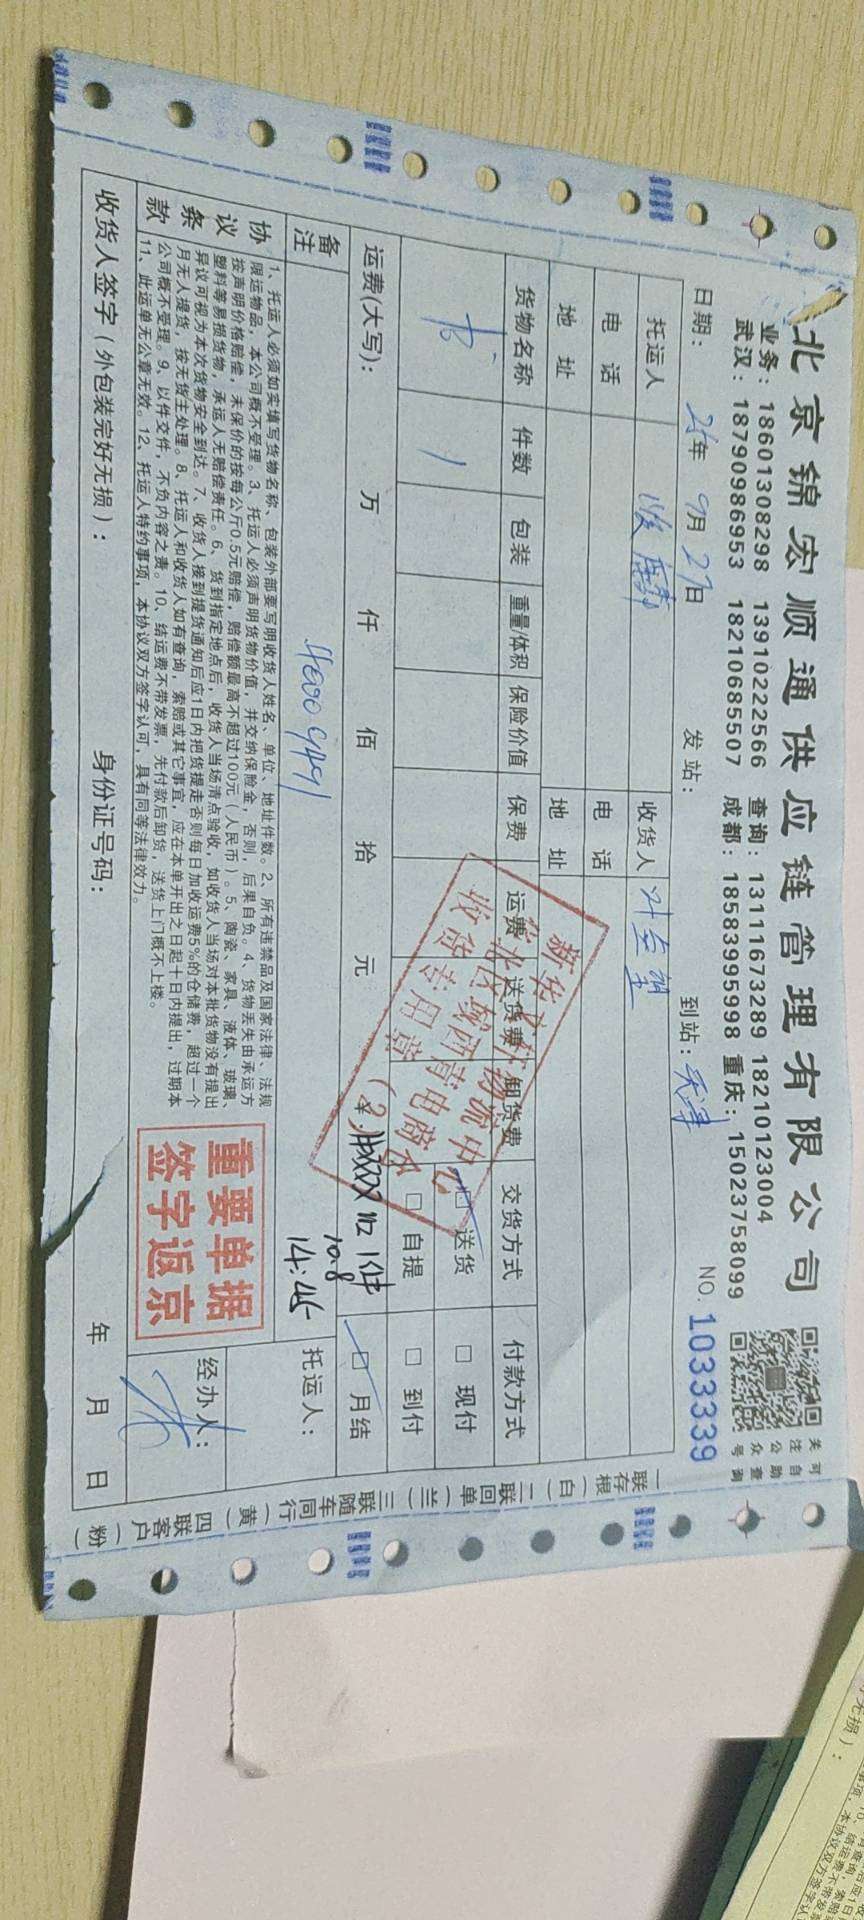 北京锦宏顺通供应链管理有限公司
业务：18601308298 13910222566 查询：13111673289 18210123004
武汉：18790986953 18210685507 成都：18583995998 重庆：15023758099
河自助查询
关注公众号
日期：25年9月27日 发站： 到站：天津
NO. 1033339
托运人 收货人
电话 电话
地址 地址
货物名称 件数 包装 重量/体积 保险价值 保费 运费 送货费 卸货费 交货方式 付款方式
书 1 □送货 □现付
□自提 □到付
运费(大写)： 万 仟 佰 拾 元 □月结
新华文轩物流中心
收货专用章
1件
10.8
14:45
备注
托运人：
协议条款
1、托运人必须如实填写货物名称、包装外部要写明收货人姓名、单位、地址件数。2、所有违禁品及国家法律、法规
限运物品，本公司概不受理。3、托运人必须声明货物价值，并交纳保险金，否则，后果自负。4、货物丢失由承运方
按声明价格赔偿，未保价的按每公斤0.5元赔偿，赔偿额最高不超过100元（人民币）。5、陶瓷、家具、液体、玻璃、
塑料等易损货物，承运人无赔偿责任。6、货到指定地点后，收货人当场清点验收，如收货人当场对本批货物没有提出
异议可视为本次货物安全到达。7、收货人接到提货通知后应1日内把货提走否则每日加收运费5%的仓储费，超过一个
月无人提货，按无货主处理。8、托运人和收货人如有查询，索赔或其它事宜，应在本单开出之日起十日内提出，过期本
公司概不受理。9、以件交件，不负内容之责。10、结运费不带发票，先付款后卸货，送货上门概不上楼。
11、此运单无公章无效。12、托运人特约事项，本协议双方签字认可，具有同等法律效力。
重要单据
签字返京
经办人：
收货人签字（外包装完好无损）： 身份证号码： 年 月 日
一联存根（白）二联回单（兰）三联随车同行（黄）四联客户（粉）